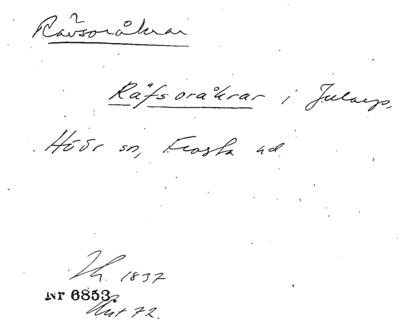 Rävsoråkrar
Räfsoråkrar i Jularp,
Höör sn, Frosta hd
1837
Nr 6853.
Akt 72.